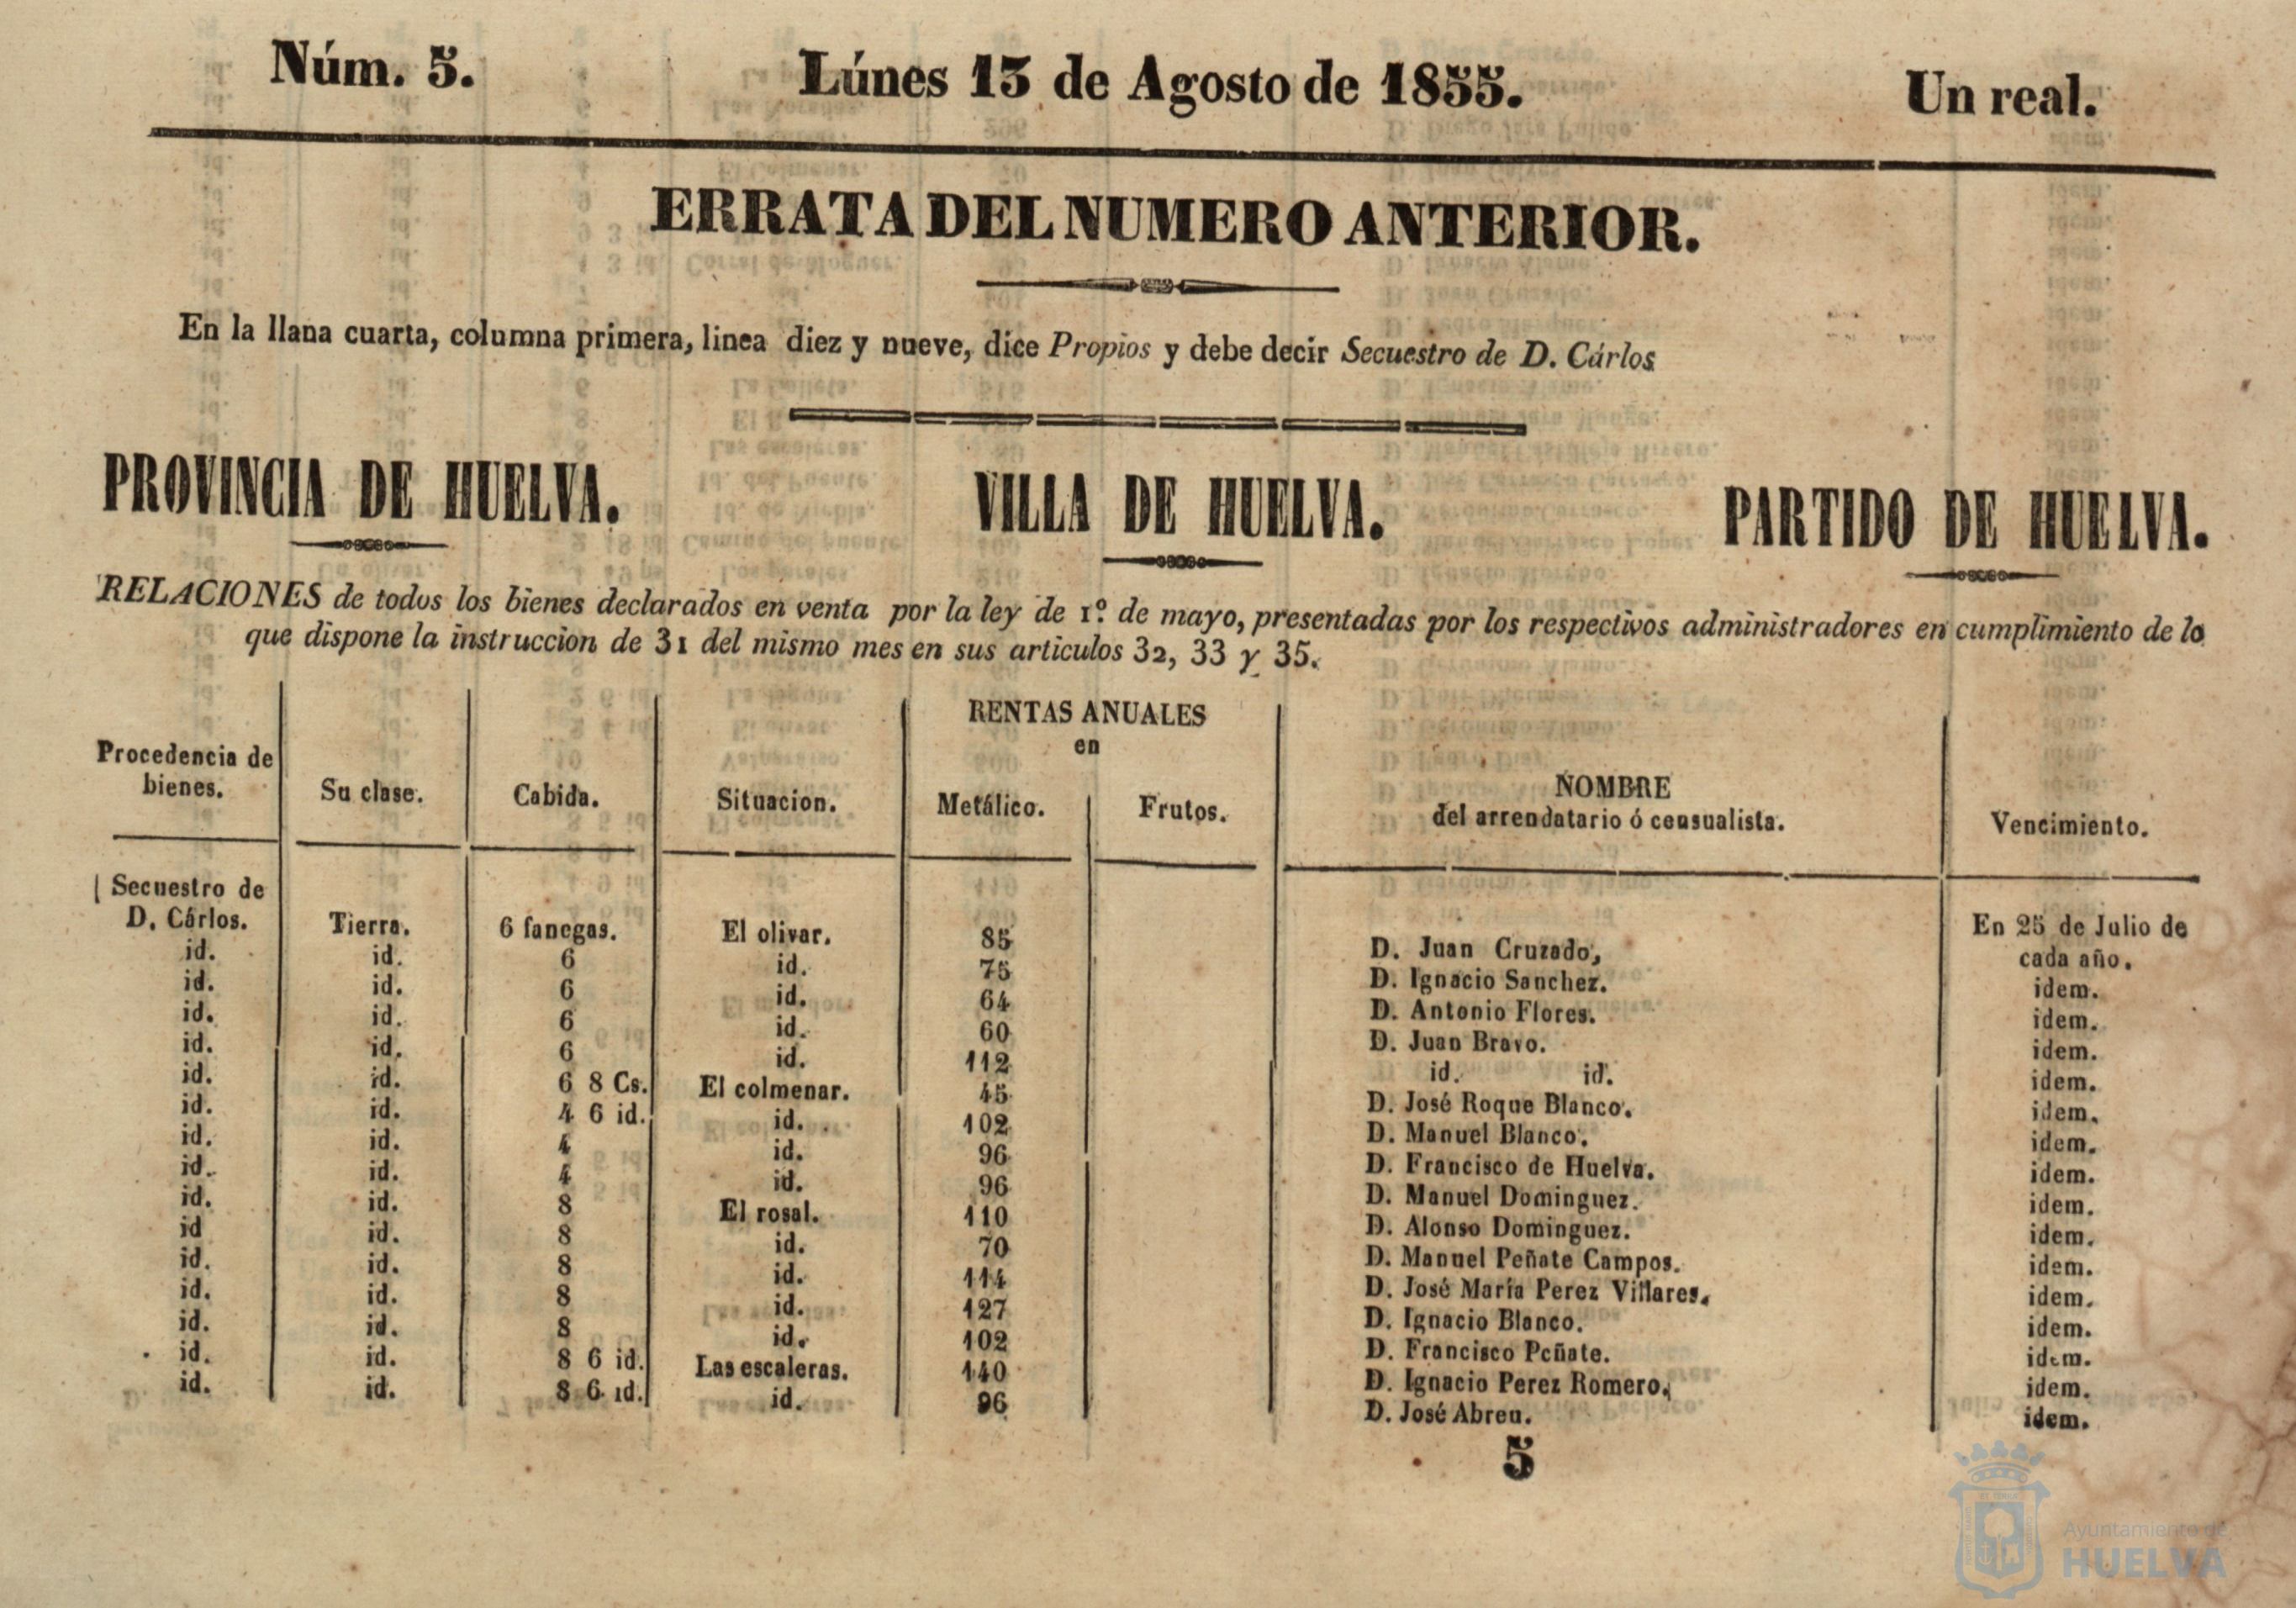 Núm. 5.
Lúnes 13 de Agosto de 1855.
Un real.
ERRATA DEL NUMERO ANTERIOR.
En la llana cuarta, columna primera, linea diez y nueve, dice Propios y debe decir Secuestro de D. Cárlos
PROVINCIA DE HUELVA.
VILLA DE HUELVA.
PARTIDO DE HUELVA.
RELACIONES de todos los bienes declarados en venta por la ley de 1º. de mayo, presentadas por los respectivos administradores en cumplimiento de lo
que dispone la instruccion de 31 del mismo mes en sus articulos 32, 33 y 35.
RENTAS ANUALES
en
Procedencia de
bienes.
Su clase.
Cabida.
Situacion.
Metálico.
Frutos.
NOMBRE
del arrendatario ó censualista.
Vencimiento.
Secuestro de
En 25 de Julio de
D. Cárlos. Tierra. 6 fanegas. El olivar. 85 D. Juan Cruzado, cada año.
id. id. 6 id. 75 D. Ignacio Sanchez. idem.
id. id. 6 id. 64 D. Antonio Flores. idem.
id. id. 6 id. 60 D. Juan Bravo. idem.
id. id. 6 id. 112 id. id. idem.
id. id. 6 8 Cs. El colmenar. 45 D. José Roque Blanco. idem.
id. id. 4 6 id. id. 102 D. Manuel Blanco. idem.
id. id. 4 id. 96 D. Francisco de Huelva. idem.
id. id. 4 id. 96 D. Manuel Dominguez. idem.
id. id. 8 El rosal. 110 D. Alonso Dominguez. idem.
id id. 8 id. 70 D. Manuel Peñate Campos. idem.
id. id. 8 id. 114 D. José María Perez Villares. idem.
id. id. 8 id. 127 D. Ignacio Blanco. idem.
id. id. 8 id. 102 D. Francisco Peñate. idem.
id. id. 8 6 id. Las escaleras. 140 D. Ignacio Perez Romero. idem.
id. id. 8 6 id. id. 96 D. José Abreu. idem.
5
Ayuntamiento de
HUELVA